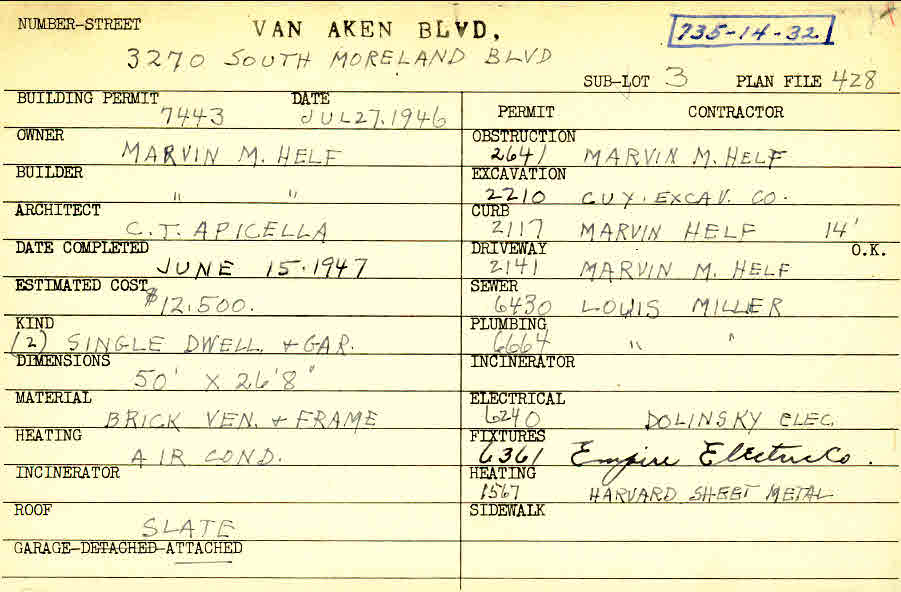 NUMBER-STREET VAN AKEN BLVD. 735-14-32
3270 SOUTH MORELAND BLVD
SUB-LOT 3 PLAN FILE 428
BUILDING PERMIT DATE
7443 JUL 27.1946
PERMIT CONTRACTOR
OWNER
MARVIN M. HELF
OBSTRUCTION
2641 MARVIN M. HELF
BUILDER
" "
EXCAVATION
2210 CUY. EXCAV. CO.
ARCHITECT
C.T. APICELLA
CURB
2117 MARVIN HELF 14'
DATE COMPLETED
JUNE 15.1947
DRIVEWAY O.K.
2141 MARVIN M. HELF
ESTIMATED COST
$12.500.
SEWER
6430 LOUIS MILLER
KIND
(2) SINGLE DWELL. + GAR.
PLUMBING
6664 " "
DIMENSIONS
50' X 26'8"
INCINERATOR
MATERIAL
BRICK VEN. + FRAME
ELECTRICAL
6240 DOLINSKY ELEC.
HEATING
AIR COND.
FIXTURES
6361 Empire Electric Co.
INCINERATOR
HEATING
1567 HARVARD SHEET METAL
ROOF
SLATE
SIDEWALK
GARAGE-DETACHED-ATTACHED